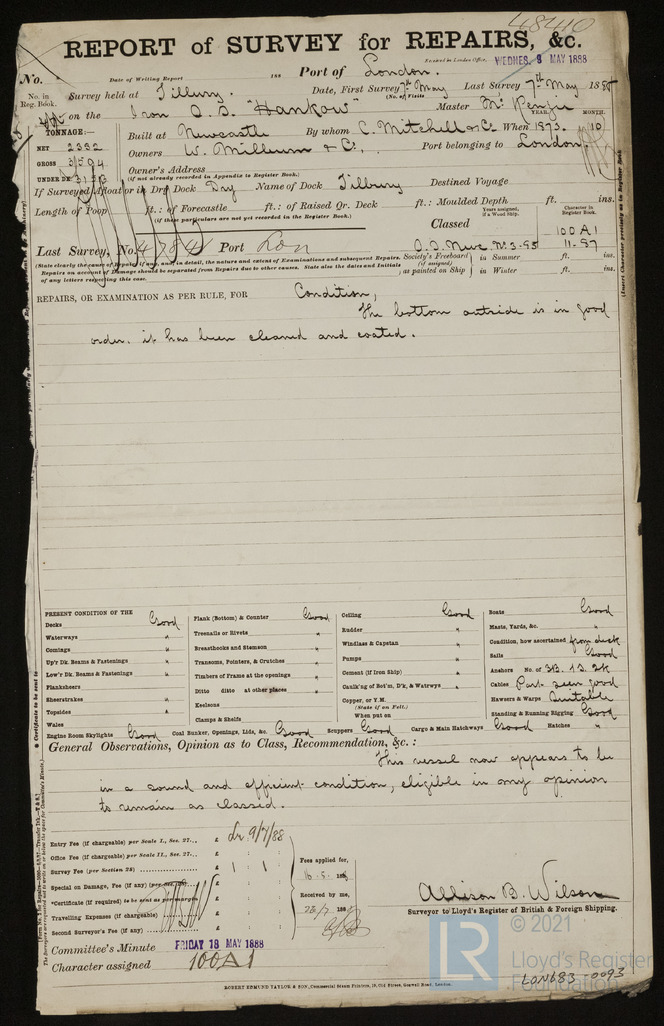 48410
REPORT of SURVEY for REPAIRS, &c.
Received in London Office, WEDNES. 9 MAY 1888
No. Date of Writing Report 188 Port of London.
No. in Reg. Book. Survey held at Tilbury. Date, First Survey 7th May Last Survey 7th May 1888
(No. of Visits
on the Iron S.S. "Hankow" Master
TONNAGE:— YEAR. MONTH.
NET 2332 Built at Newcastle By whom C. Mitchell & Co. When 1873. 10
GROSS 3594 Owners W. Milburn & Co. Port belonging to London
UNDER DK Owner's Address
(if not already recorded in Appendix to Register Book.)
If Surveyed Afloat or in Dry Dock Dry Name of Dock Tilbury Destined Voyage
Length of Poop ft.: of Forecastle ft.: of Raised Qr. Deck ft.: Moulded Depth ft. ins.
(if these particulars are not yet recorded in the Register Book.)
Classed Years assigned, if a Wood Ship. Character in Register Book.
100A1
Last Survey, No. Port Lon 11.87
(State clearly the cause of Repairs if any, and, in detail, the nature and extent of Examinations and subsequent Repairs.
Repairs on account of Damage should be separated from Repairs due to other causes. State also the dates and Initials
of any letters respecting this case.
Society's Freeboard (if assigned) as painted on Ship in Summer ft. ins.
in Winter ft. ins.
(Insert Character precisely as in Register Book
REPAIRS, OR EXAMINATION AS PER RULE, FOR Condition,
The bottom outside is in good
order. it has been cleaned and coated.
PRESENT CONDITION OF THE
Decks Good
Waterways "
Comings "
Up'r Dk. Beams & Fastenings "
Low'r Dk. Beams & Fastenings "
Planksheers
Sheerstrakes "
Topsides "
Wales
Engine Room Skylights Good
Plank (Bottom) & Counter Good
Treenails or Rivets "
Breasthooks and Stemson "
Transoms, Pointers, & Crutches "
Timbers of Frame at the openings "
Ditto ditto at other places "
Keelsons
Clamps & Shelfs
Coal Bunker, Openings, Lids, &c. Good
Ceiling Good
Rudder "
Windlass & Capstan "
Pumps "
Cement (if Iron Ship) "
Caulk'ng of Bot'm, D'k, & Watrwys "
Copper, or Y.M.
(State if on Felt.)
When put on
Scuppers Good Cargo & Main Hatchways Good
Boats Good
Masts, Yards, &c. "
Condition, how ascertained from deck
Sails Good
Anchors No. of 3B. 1S. 2K
Cables Part seen good
Hawsers & Warps Suitable
Standing & Running Rigging Good
Hatches "
General Observations, Opinion as to Class, Recommendation, &c.:
This vessel now appears to be
in a sound and efficient condition, eligible in my opinion
to remain as classed.
Entry Fee (if chargeable) per Scale I., Sec. 27... £
Office Fee (if chargeable) per Scale II., Sec. 27... £
Survey Fee (per Section 28) £ 1 : 1 :
Special on Damage, Fee (if any) £
Certificate (if required) to be sent as per margin £
Travelling Expenses (if chargeable) £
Second Surveyor's Fee (if any) £
9/7/88
Fees applied for,
16.5.188
Received by me,
188
Allison B. Wilson
Surveyor to Lloyd's Register of British & Foreign Shipping.
Committee's Minute FRIDAY 18 MAY 1888
Character assigned 100A1
ROBERT EDMUND TAYLOR & SON, Commercial Steam Printers, 19, Old Street, Goswell Road, London.
LR
© 2021
Lloyd's Register
Foundation
LON683-0093